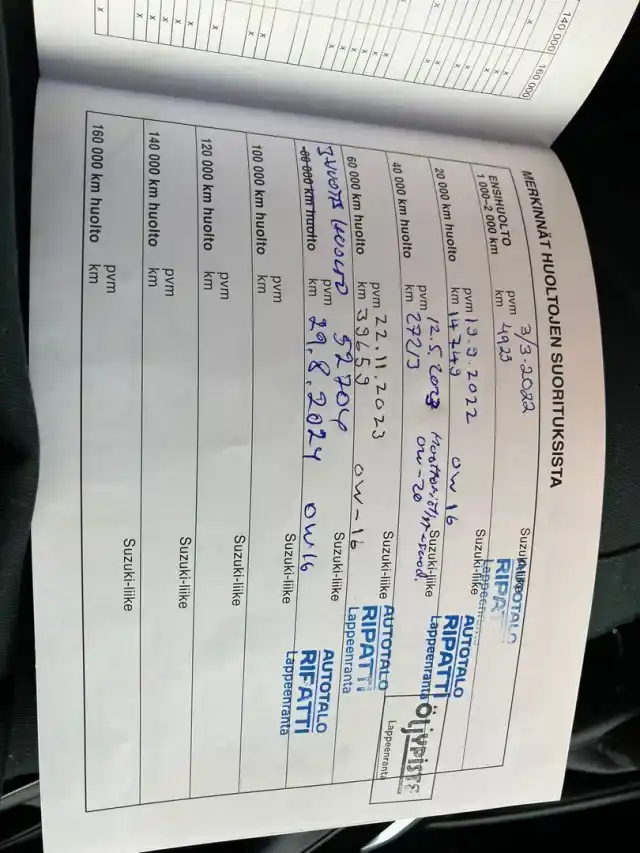 140 000
160 000
MERKINNÄT HUOLTOJEN SUORITUKSISTA
ENSIHUOLTO
1 000–2 000 km
pvm 3/3-2022
km 4923
Suzuki-liike
AUTOTALO
RIPATTI
Lappeenranta
20 000 km huolto
pvm 19.9.2022
km 14749
OW 16
Suzuki-liike
AUTOTALO
RIPATTI
Lappeenranta
40 000 km huolto
pvm 12.5.2023
km 27213
OW-20
Suzuki-liike
Öljypiste
Lappeenranta
60 000 km huolto
pvm 22.11.2023
km 39659
OW-16
Suzuki-liike
AUTOTALO
RIPATTI
Lappeenranta
3 VUOTIS HUOLTO
80 000 km huolto
pvm 52704
km 29.8.2024
OW16
Suzuki-liike
AUTOTALO
RIPATTI
Lappeenranta
100 000 km huolto
pvm
km
Suzuki-liike
120 000 km huolto
pvm
km
Suzuki-liike
140 000 km huolto
pvm
km
Suzuki-liike
160 000 km huolto
pvm
km
Suzuki-liike